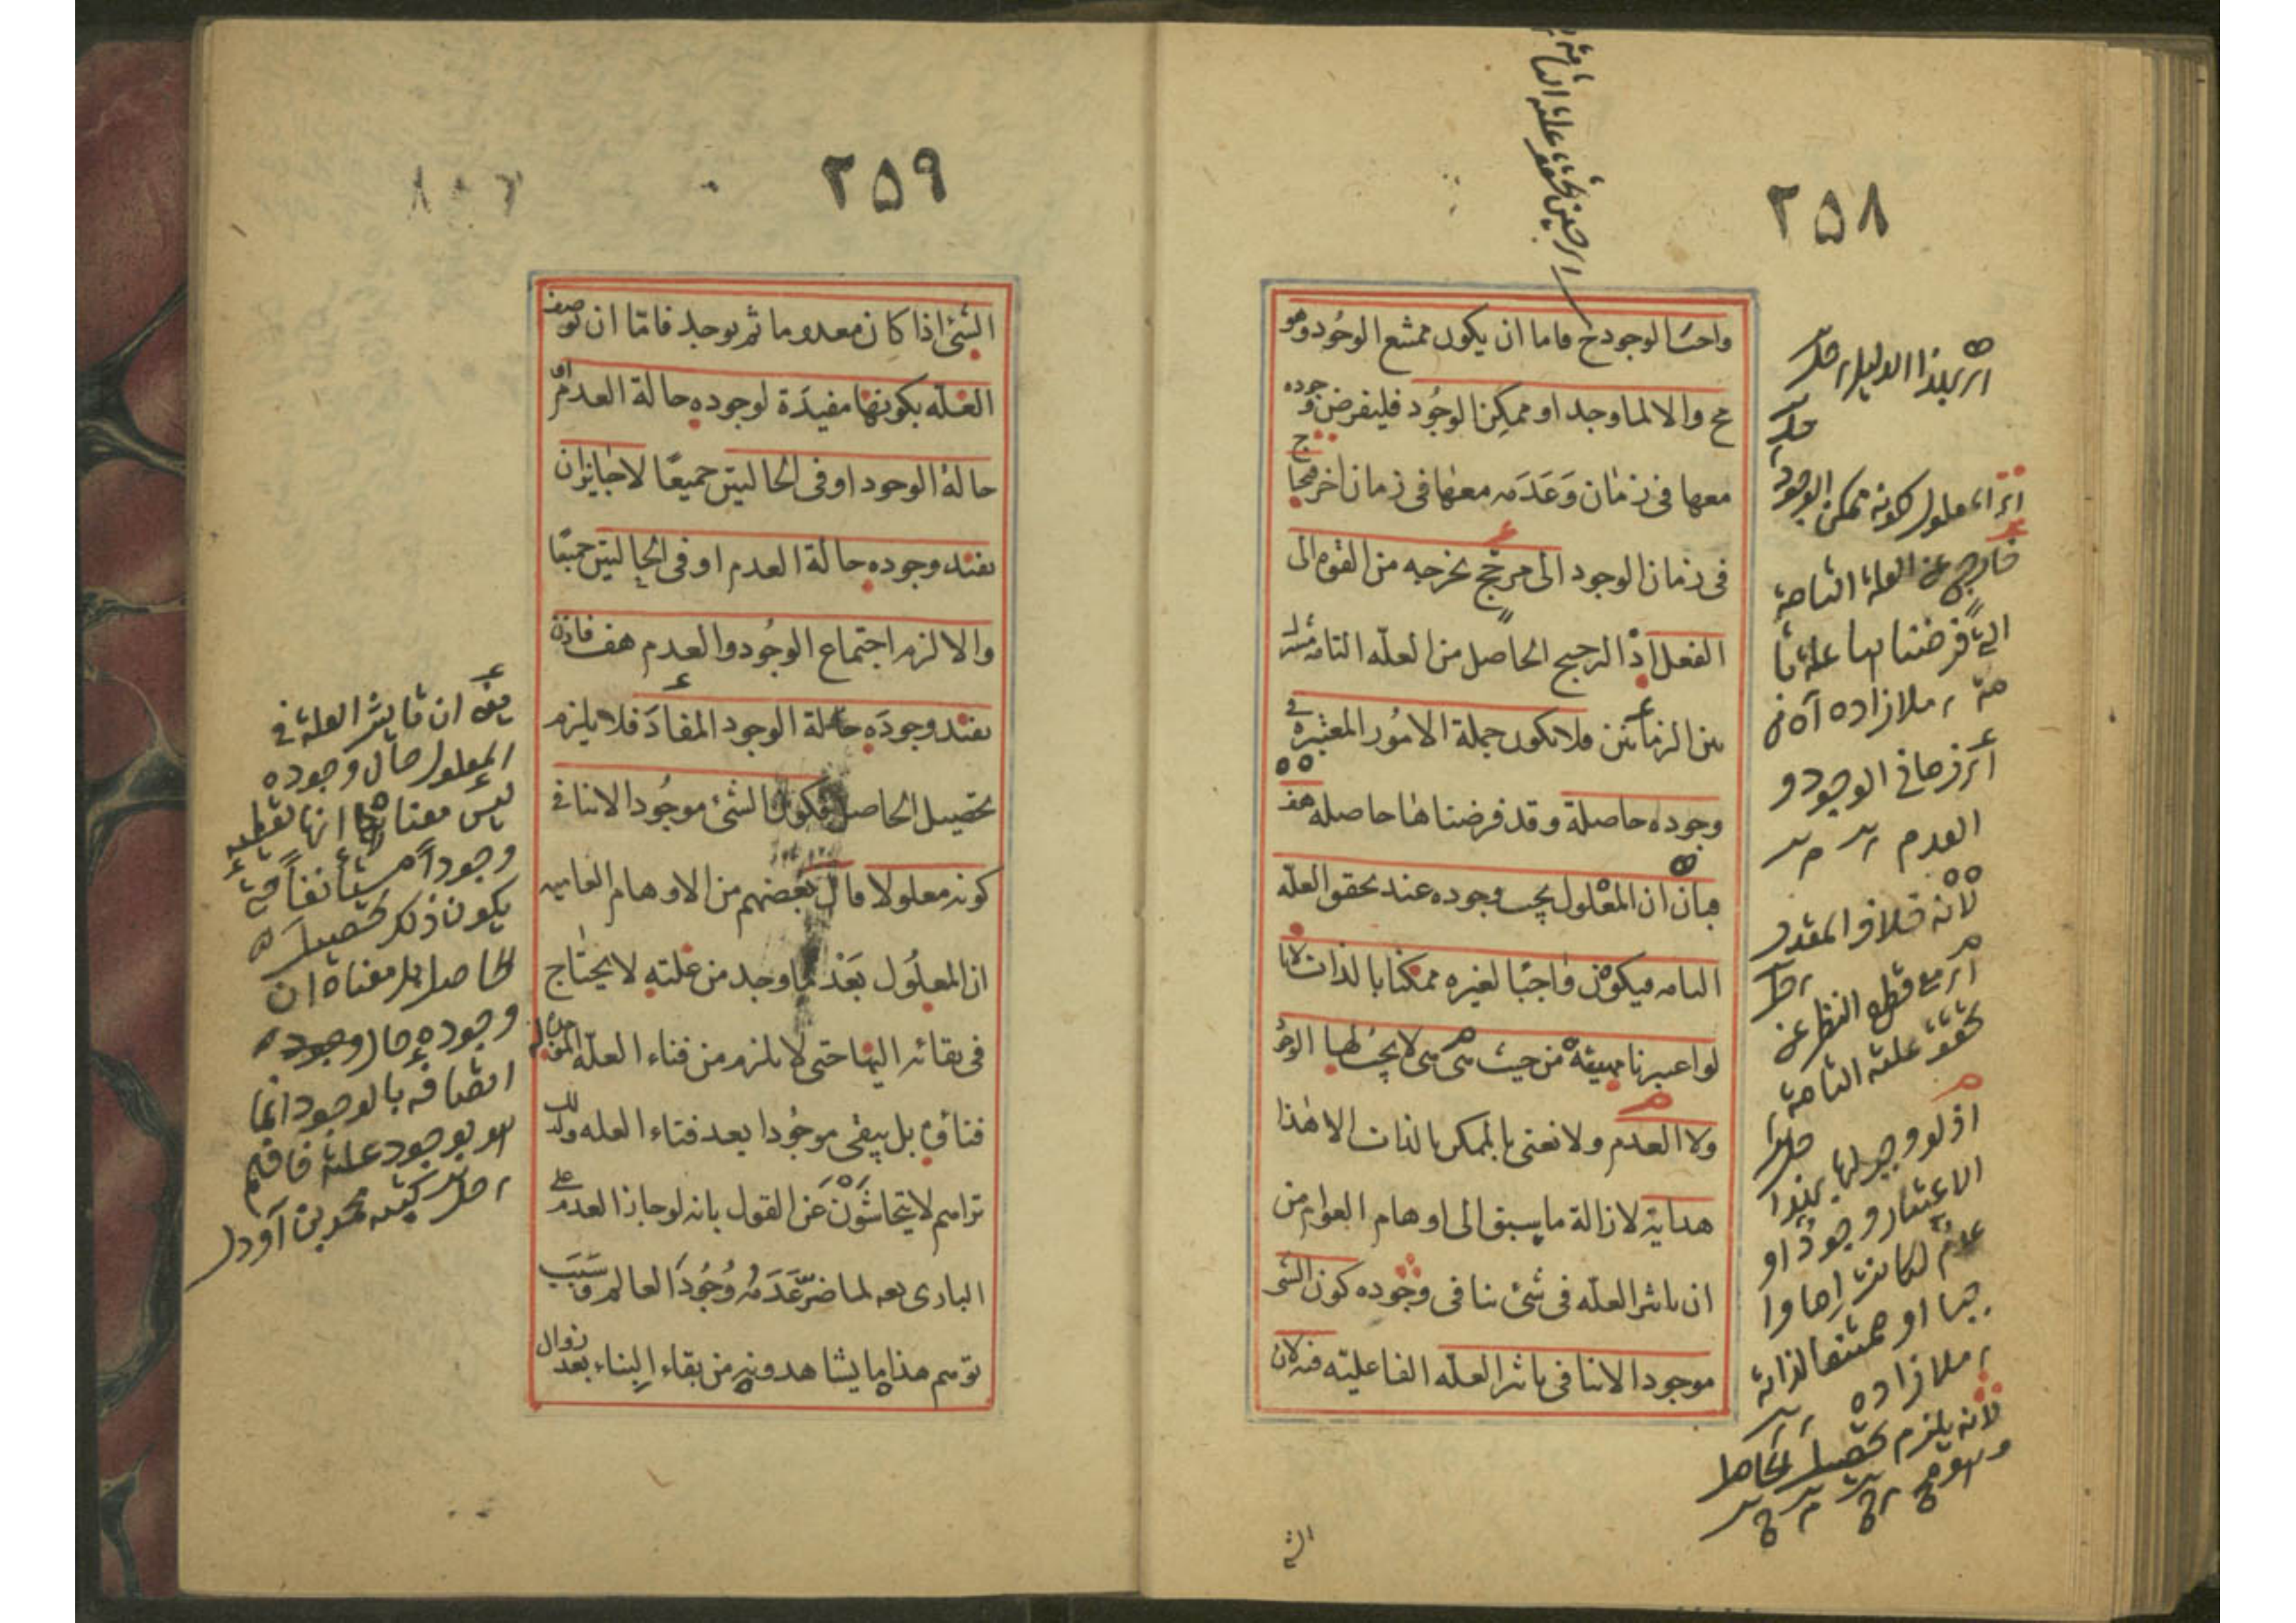 ٢٥٨
واجب الوجود ح فاما ان يكون ممتنع الوجود وهو
مح والا لما وجد او ممكن الوجود فليفرض وجوده
معها فى زمان وَعَدَمه معها فى زمان اخر فيحتاج
فى زمان الوجود الى مرجح يخرجه من القوه الى
الفعل اذ الترجيح الحاصل من العلّه التامه مشترك
بين الزمانين فلا تكون جملة الامُور المعتبرة فى
وجوده حاصلة وقد فرضناها حاصله هف
فبان ان المعْلول يجب وجوده عند تحقق العلّه
التامه فيكون وَاجبًا لغيره ممكنًا بالذات لانا
لو اعتبرنا مهيته من حيث هى هى لا يجب لها الوجود
ولا العدم ولا نعنى بالممكن بالذات الا هٰذا
هداية لازالة ما يسبق الى اوهام العوام من
ان تاثير العلّه فى شئ ينافى وجوده كون الشى
موجودا لا ينافى تاثير العلّه الفاعليّه فيه لان
اى بهذا الدليل
اى المعلول لكونه ممكن الوجود
خارج عن العلة التامة
التى فرضنا انها علة تا
مة ملازاده
اى زمانى الوجود و
العدم
لانه خلاف المقدر
اى مع قطع النظر عن
تحقق علته التامة
اذ لو وجب لها بهذا
الاعتبار وجودٌ او
عدمٌ لكانت اما وا
جبا او ممتنعا لذاته
ملازاده
لانه يلزم تحصيل الحاصل
وهو مح
اى حين تحقق علته التامة
الش
٢٥٩
الشئ اذا كان معدوما ثم يوجد فامّا ان توصف
العلّه بكونها مفيدَة لوجوده حالة العدم او
حالة الوجود او فى الحاليتين جميعًا لا جايز ان
تفيد وجوده حالة العدم او فى الحاليتين جميعًا
والا لزم اجتماع الوجُود والعدم هف فاذن
تفيد وجودَه حالة الوجود المفادَ فلا يلزم
تحصيل الحاصل فكون الشئ موجُودا لا ينافى
كونه معلولا قال بعضهم من الاوهام العاميه
ان المعلُول بَعْد ما وجد من علتهِ لا يحتاج
فى بقائه اليها حتى لا يلزم من فناء العلّه
فناؤه بل يبقى موجُودا بعد فناء العله ولذلك
تراهم لا يتحاشَوْنَ عَن القول بانه لو جاز العدم على
البارى تعه لما ضرّ عَدَمُه وُجُودَ العالم وَسَبَب
توهم هذا ما يشاهدونه من بقاء البناء بعد زوال
يعنى ان تاثير العلة فى
المعلول حال وجوده
ليس معناه انها تعطيه
وجوداً مستأنفاً حتى
يكون ذلك تحصيل
الحاصل بل معناه ان
وجوده حال وجوده
اتصافه بالوجود انما
هو بوجود علته فافهم